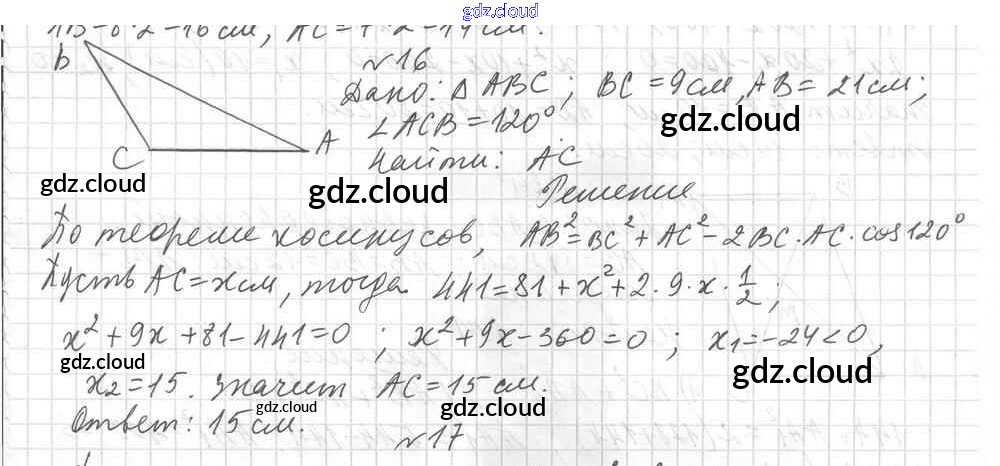 gdz.cloud
AB=8·2=16 см, AC=7·2=14 см.
№16
B
Дано: Δ ABC; BC=9см, AB=21см;
gdz.cloud
∠ACB=120°
C A
Найти: AC
gdz.cloud gdz.cloud
Решение
По теореме косинусов, AB²=BC²+AC²-2BC·AC·cos120°
Пусть AC=x см, тогда 441=81+x²+2·9·x·1/2;
x²+9x+81-441=0; x²+9x-360=0; x₁=-24<0,
gdz.cloud gdz.cloud
x₂=15. Значит AC=15 см.
gdz.cloud gdz.cloud
Ответ: 15 см.
№17
gdz.cloud gdz.cloud